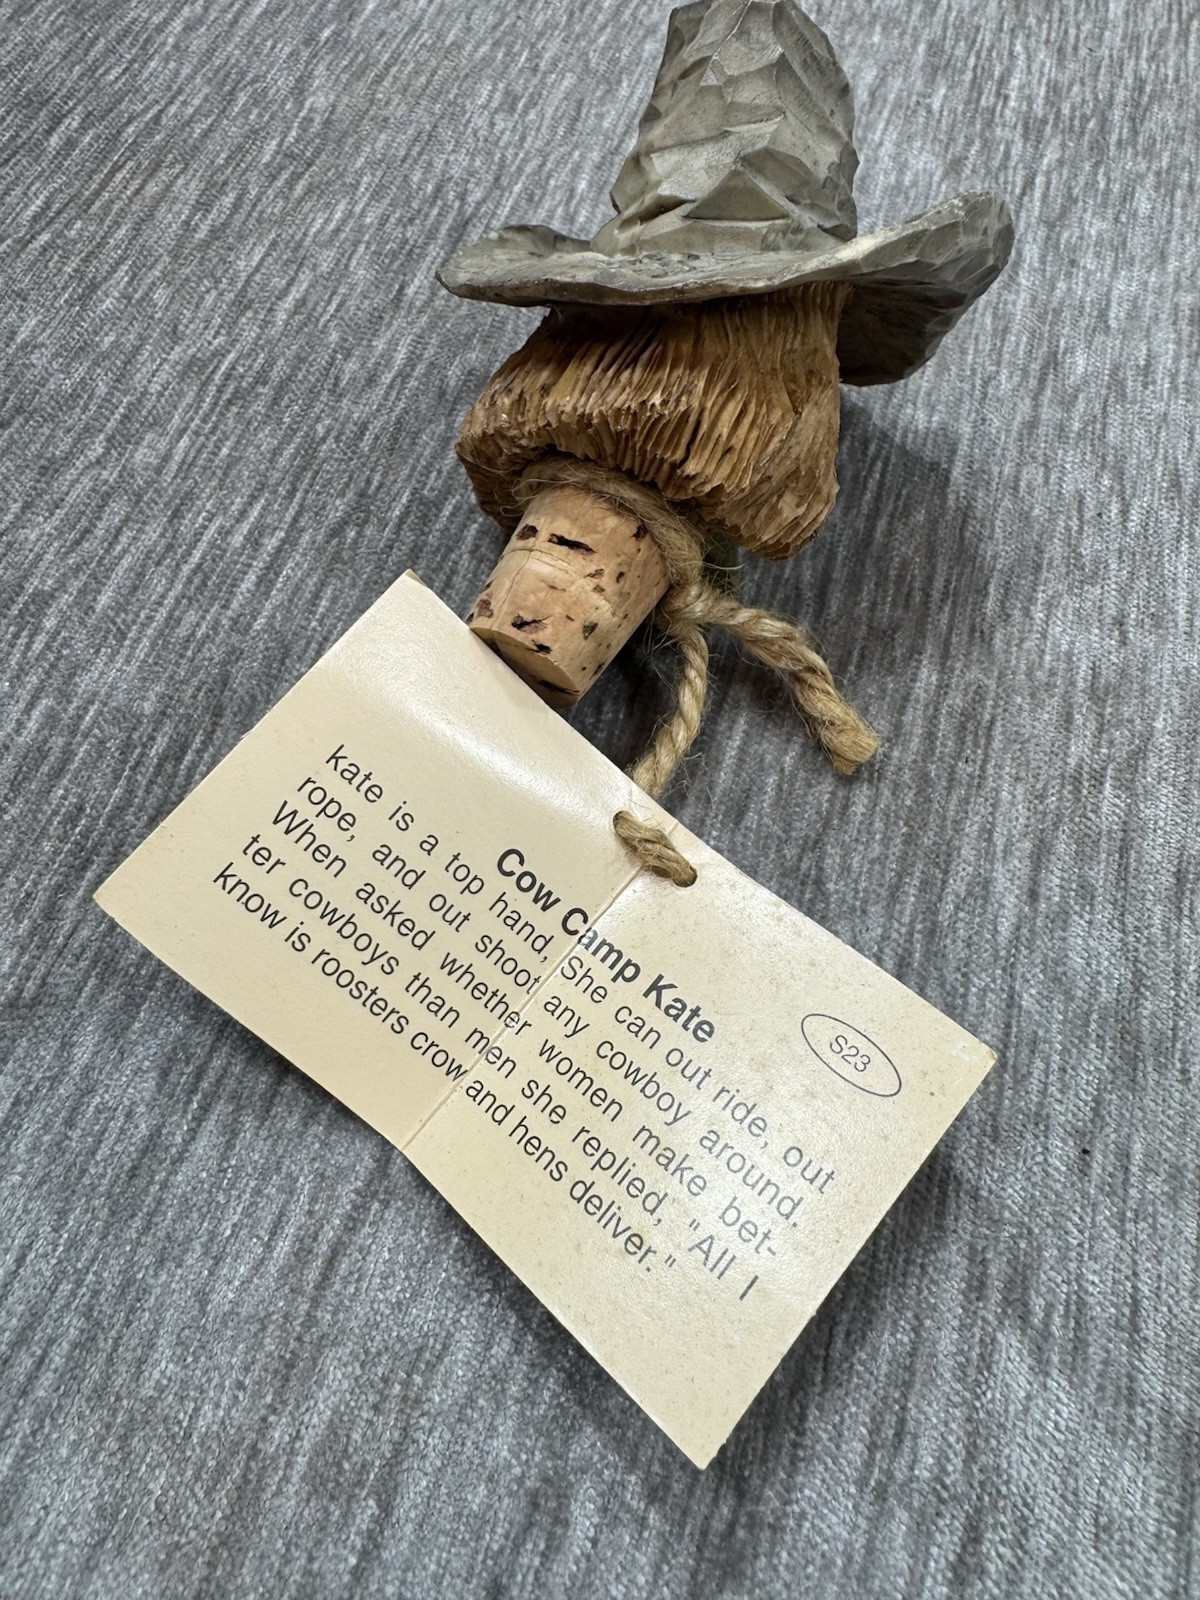 S23
Cow Camp Kate
kate is a top hand, She can out ride, out
rope, and out shoot any cowboy around.
When asked whether women make bet-
ter cowboys than men she replied, "All I
know is roosters crow and hens deliver."